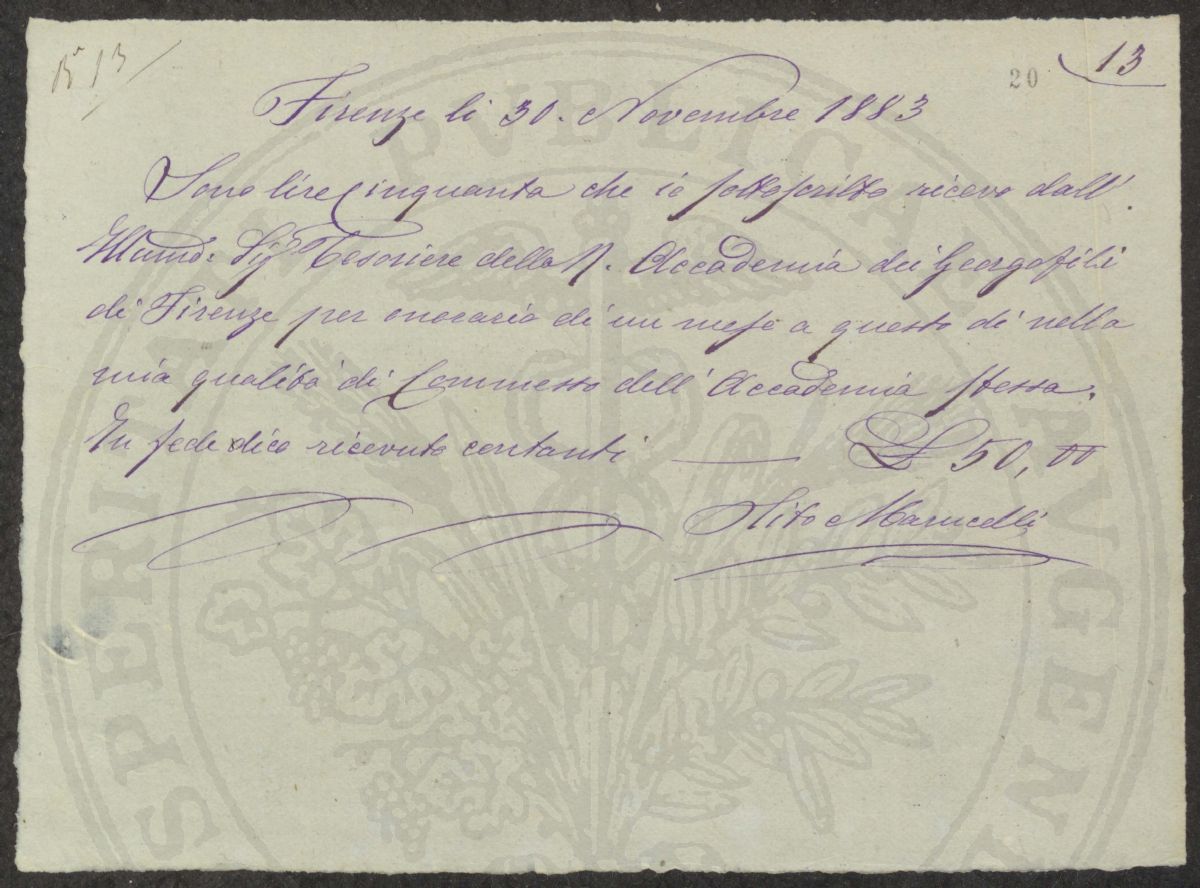 13
20
13
Firenze li 30. Novembre 1883
Sono lire Cinquanta che io sottoscritto ricevo dall'.
Illumo: Sigr Tesoriere della R. Accademia dei Georgofili
di Firenze per onorario di un mese a questo dì nella
mia qualità di Commesso dell'Accademia stessa.
In fede dico ricevuto contanti — £ 50,00
Tito Marucelli
PROSPERITATI PVBLICAE AVGENDAE